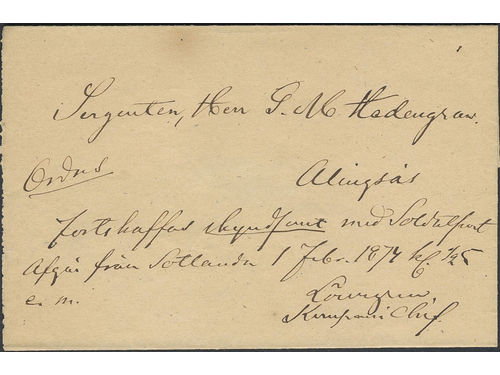 Sergenten, Herr G. M. Hedengran.
Ordres
Alingsås
fortskaffas skyndsamt med Soldatpost
Afgår från Sollanda 1 Febr. 1874 kl.
e. m.
Löwegren
Kompani Chef.